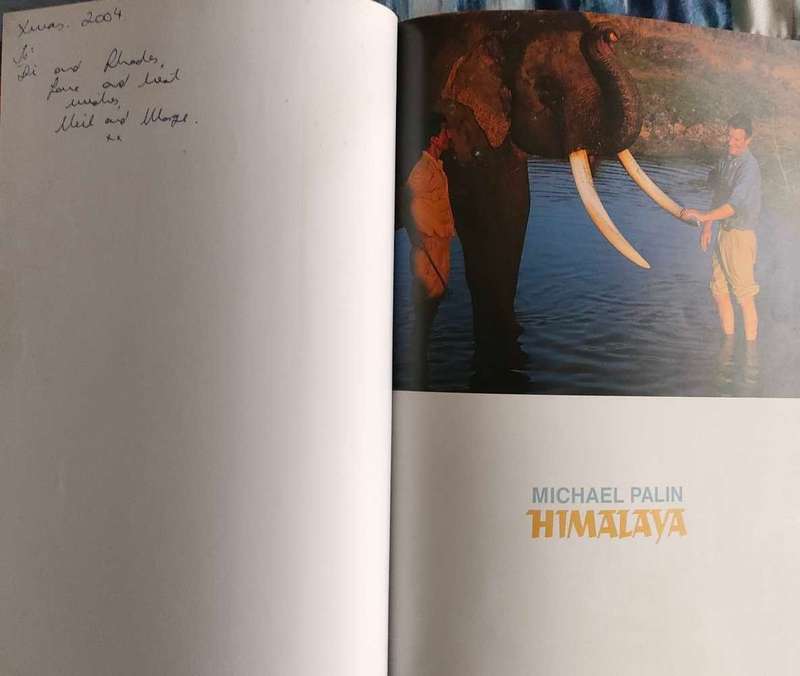 Xmas. 2004
To:
Di and Rhodes,
Love and best
wishes,
Neil and Marge.
xx
MICHAEL PALIN
HIMALAYA